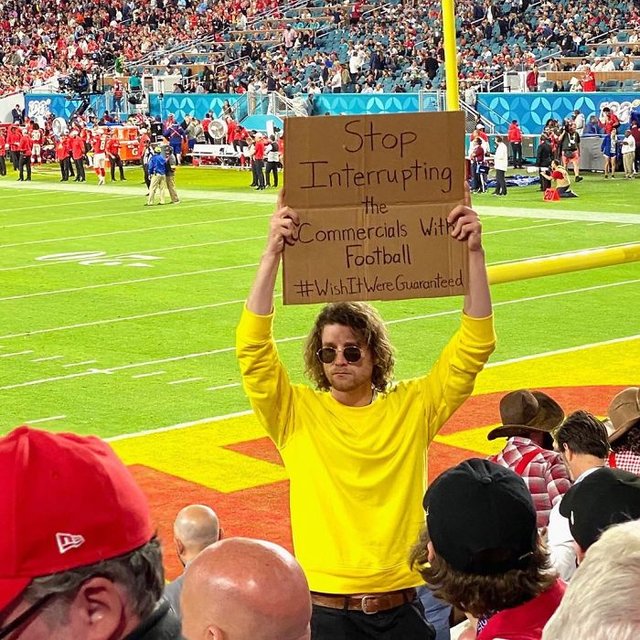 Stop
Interrupting
the
Commercials With
Football
#WishItWereGuaranteed